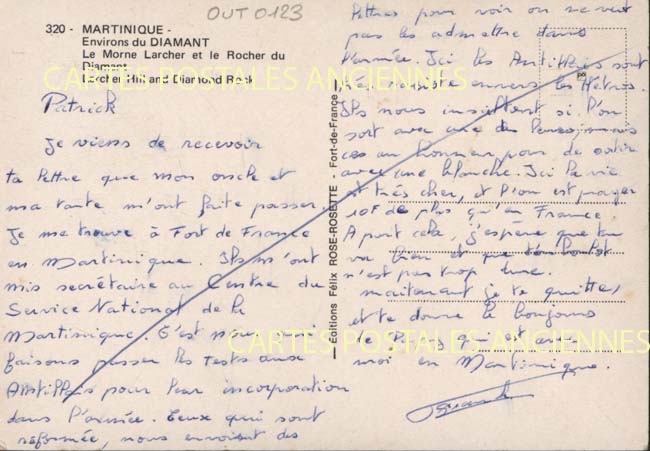 OUT 0123
320 - MARTINIQUE -
Environs du DIAMANT
Le Morne Larcher et le Rocher du
Diamant
Larcher Hill and Diamond Rock
CARTES POSTALES ANCIENNES
Patrick
Je viens de recevoir
ta lettre que mon oncle et
ma tante m'ont faite passer.
Je me trouve à Fort de France
en Martinique. Ils m'ont
mis secrétaire au Centre du
Service National de la
Martinique. C'est nous qui
faisons passer les tests aux
Antillais pour leur incorporation
dans l'armée. Ceux qui sont
reformée, nous envoient des
Editions Félix ROSE-ROSETTE - Fort-de-France
lettres pour voir on ne veut
pas les admettre dans
l'armée. Ici les Antillais sont
envers les Métros.
Ils nous insultent si l'on
sort avec une des leurs, mais
un honneur pour de sortir
avec une blanche. Ici la vie
est très cher, et l'on est payer
10F de plus qu'en France
A part cela, j'espère que tu
va bien et que ton boulot
n'est pas trop dure.
maitenant je te quitte,
et te donne le bonjours
de
moi en Martinique.
CARTES POSTALES ANCIENNES